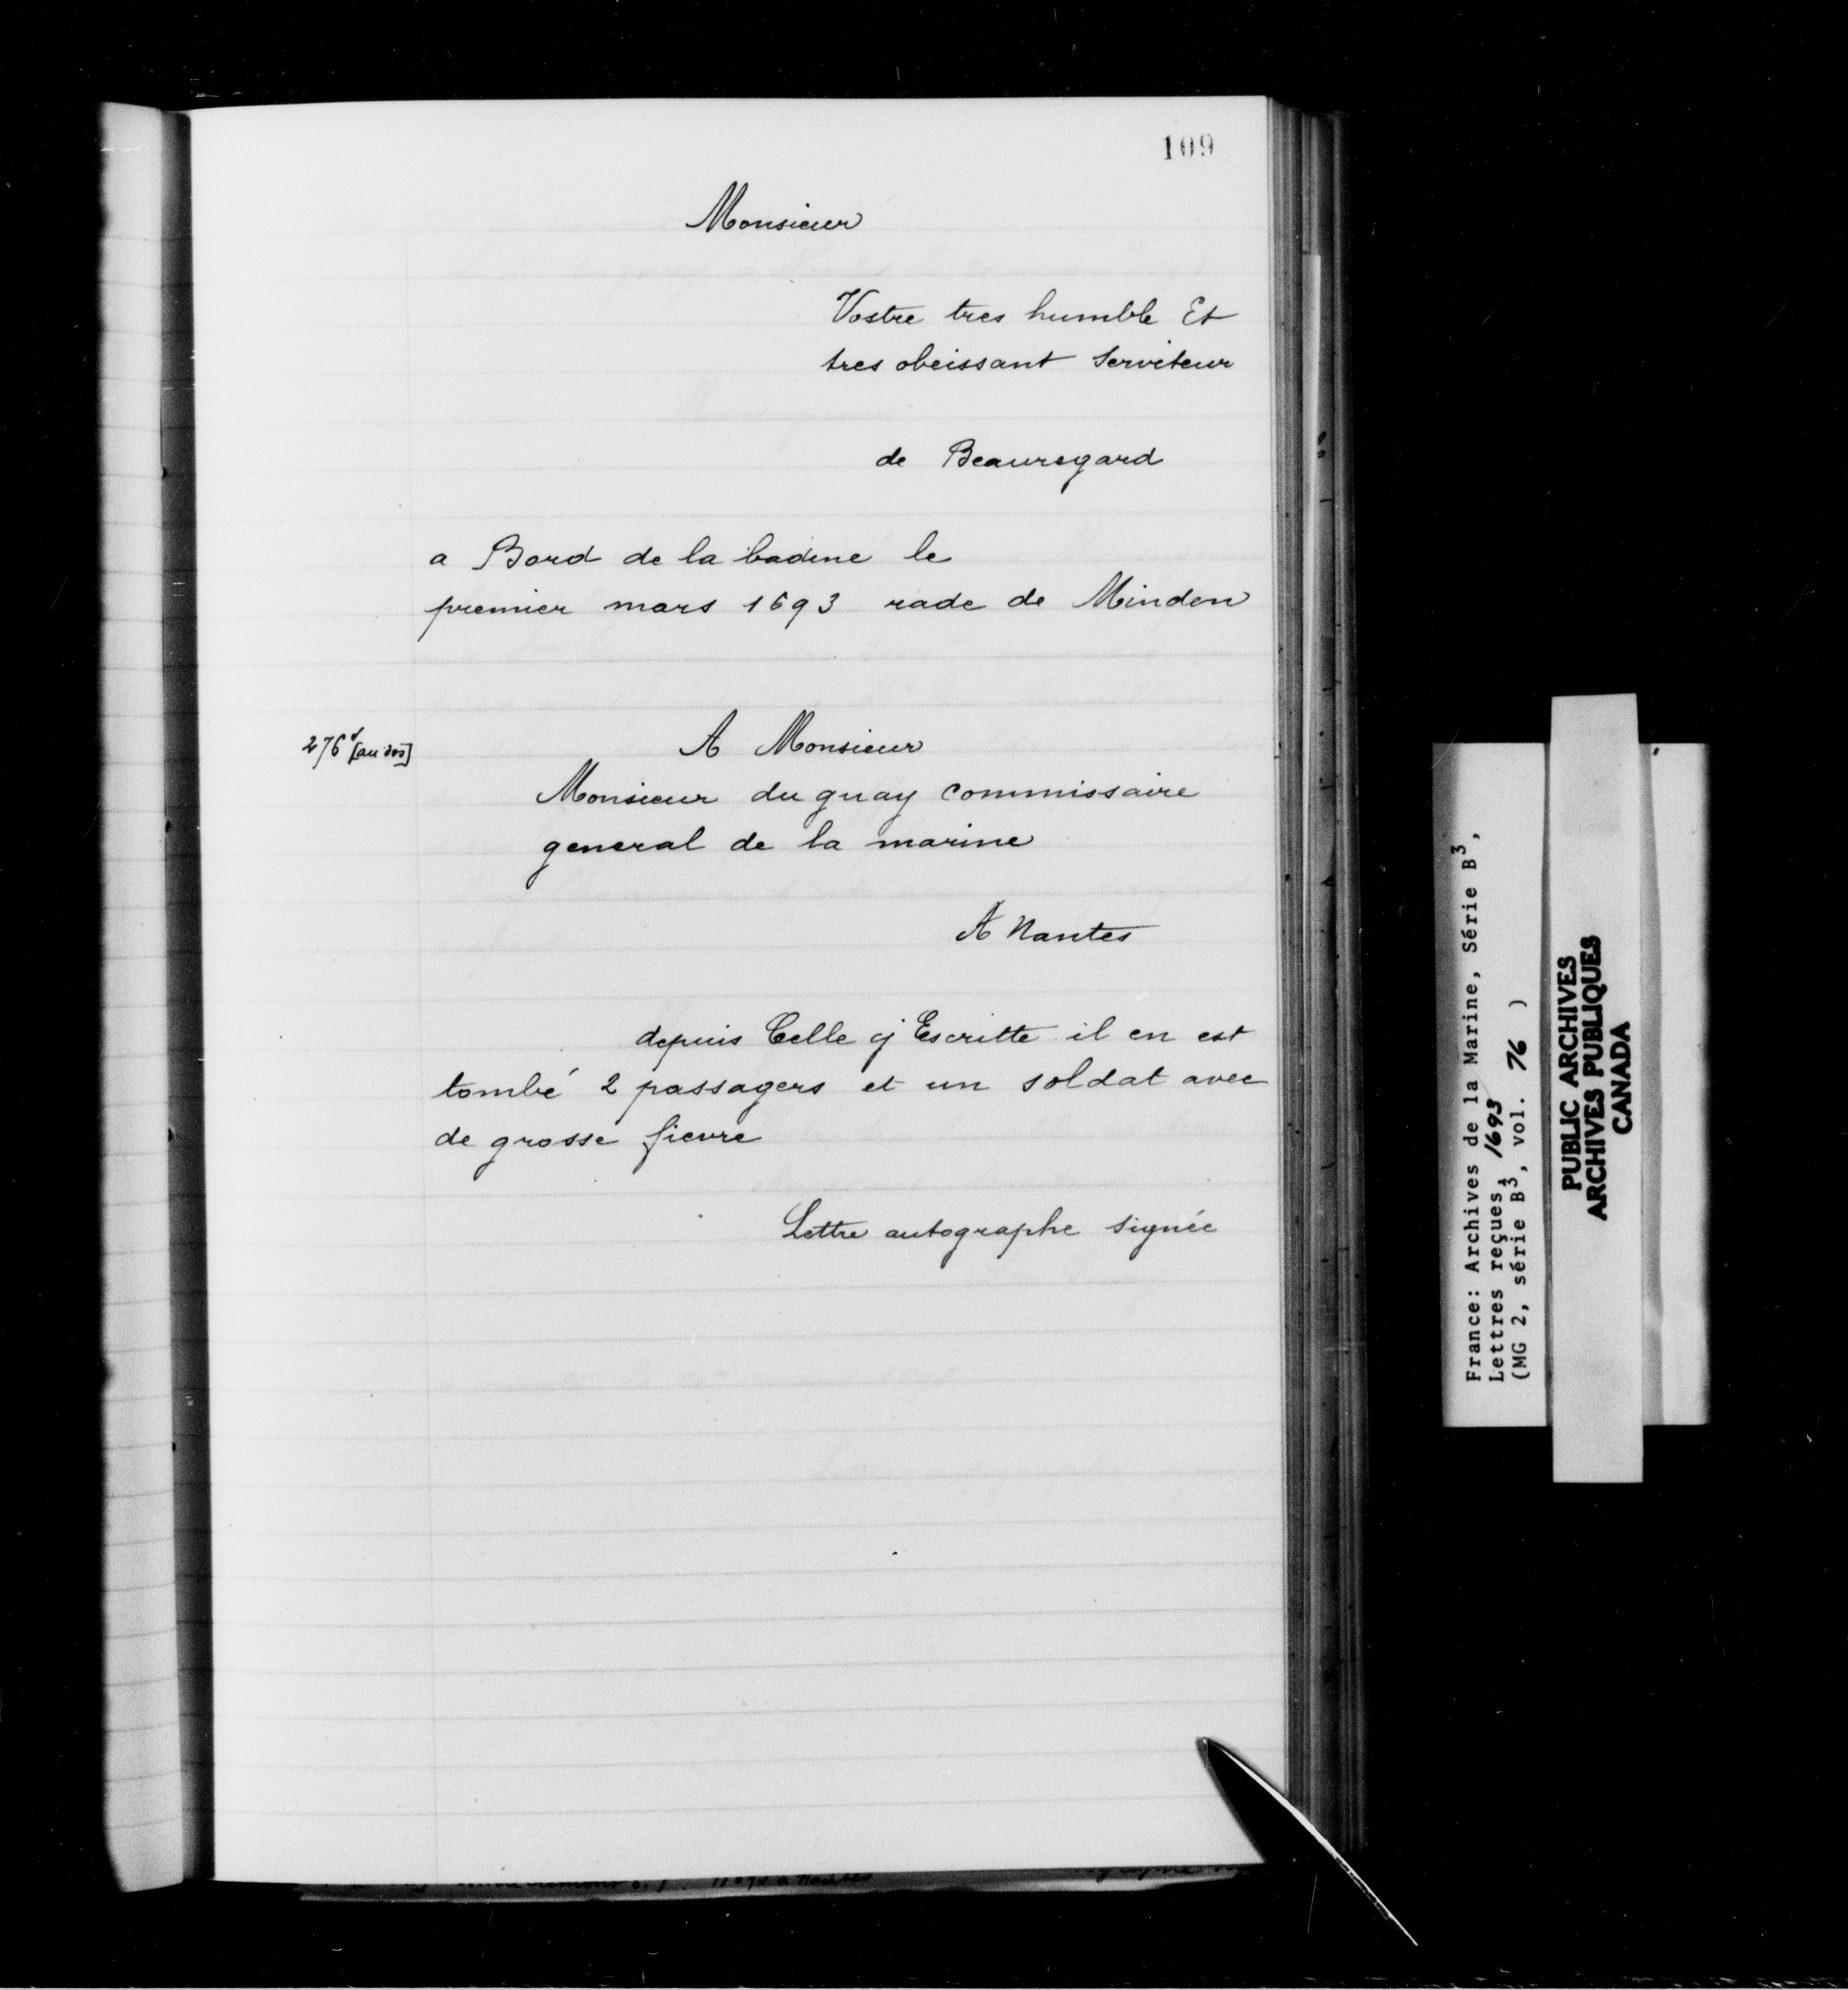 109
Monsieur
Vostre tres humble Et
tres obeissant Serviteur
de Beauregard
a Bord de la badine le
premier mars 1693 rade de Minden
276 v [au dos]
A Monsieur
Monsieur du guay commissaire
general de la marine
A Nantes
depuis Celle cj Escritte il en est
tombé 2 passagers et un soldat avec
de grosse fievre
Lettre autographe signée
France: Archives de la Marine, Série B3,
Lettres reçues, 1693
(MG 2, série B3, vol. 76 )
PUBLIC ARCHIVES
ARCHIVES PUBLIQUES
CANADA